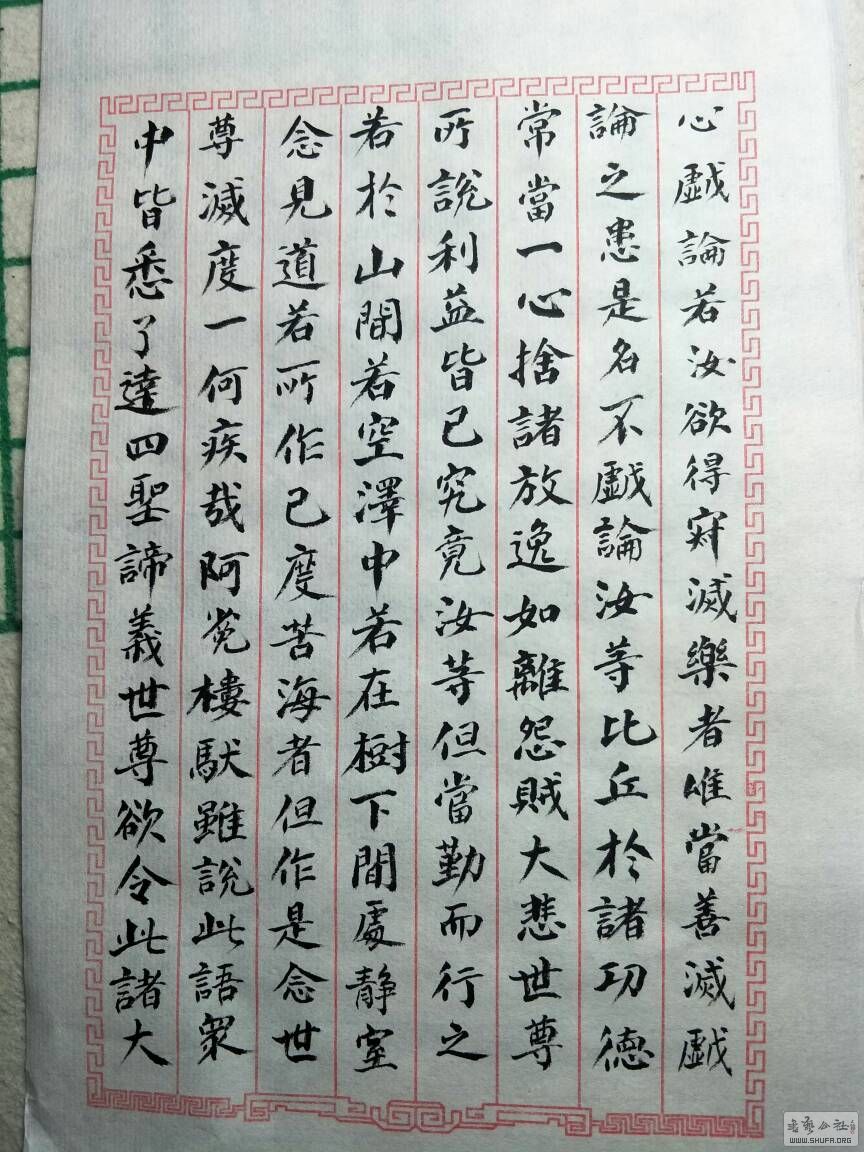 心戱論若汝欲得寂滅樂者唯當善滅戱
論之患是名不戱論汝等比丘於諸功德
常當一心捨諸放逸如離怨賊大悲世尊
所說利益皆已究竟汝等但當勤而行之
若於山間若空澤中若在樹下間處靜室
念見道若所作已度苦海者但作是念世
尊滅度一何疾哉阿㝹樓馱雖說此語眾
中皆悉了達四聖諦義世尊欲令此諸大
书艺公社
WWW.SHUFA.ORG